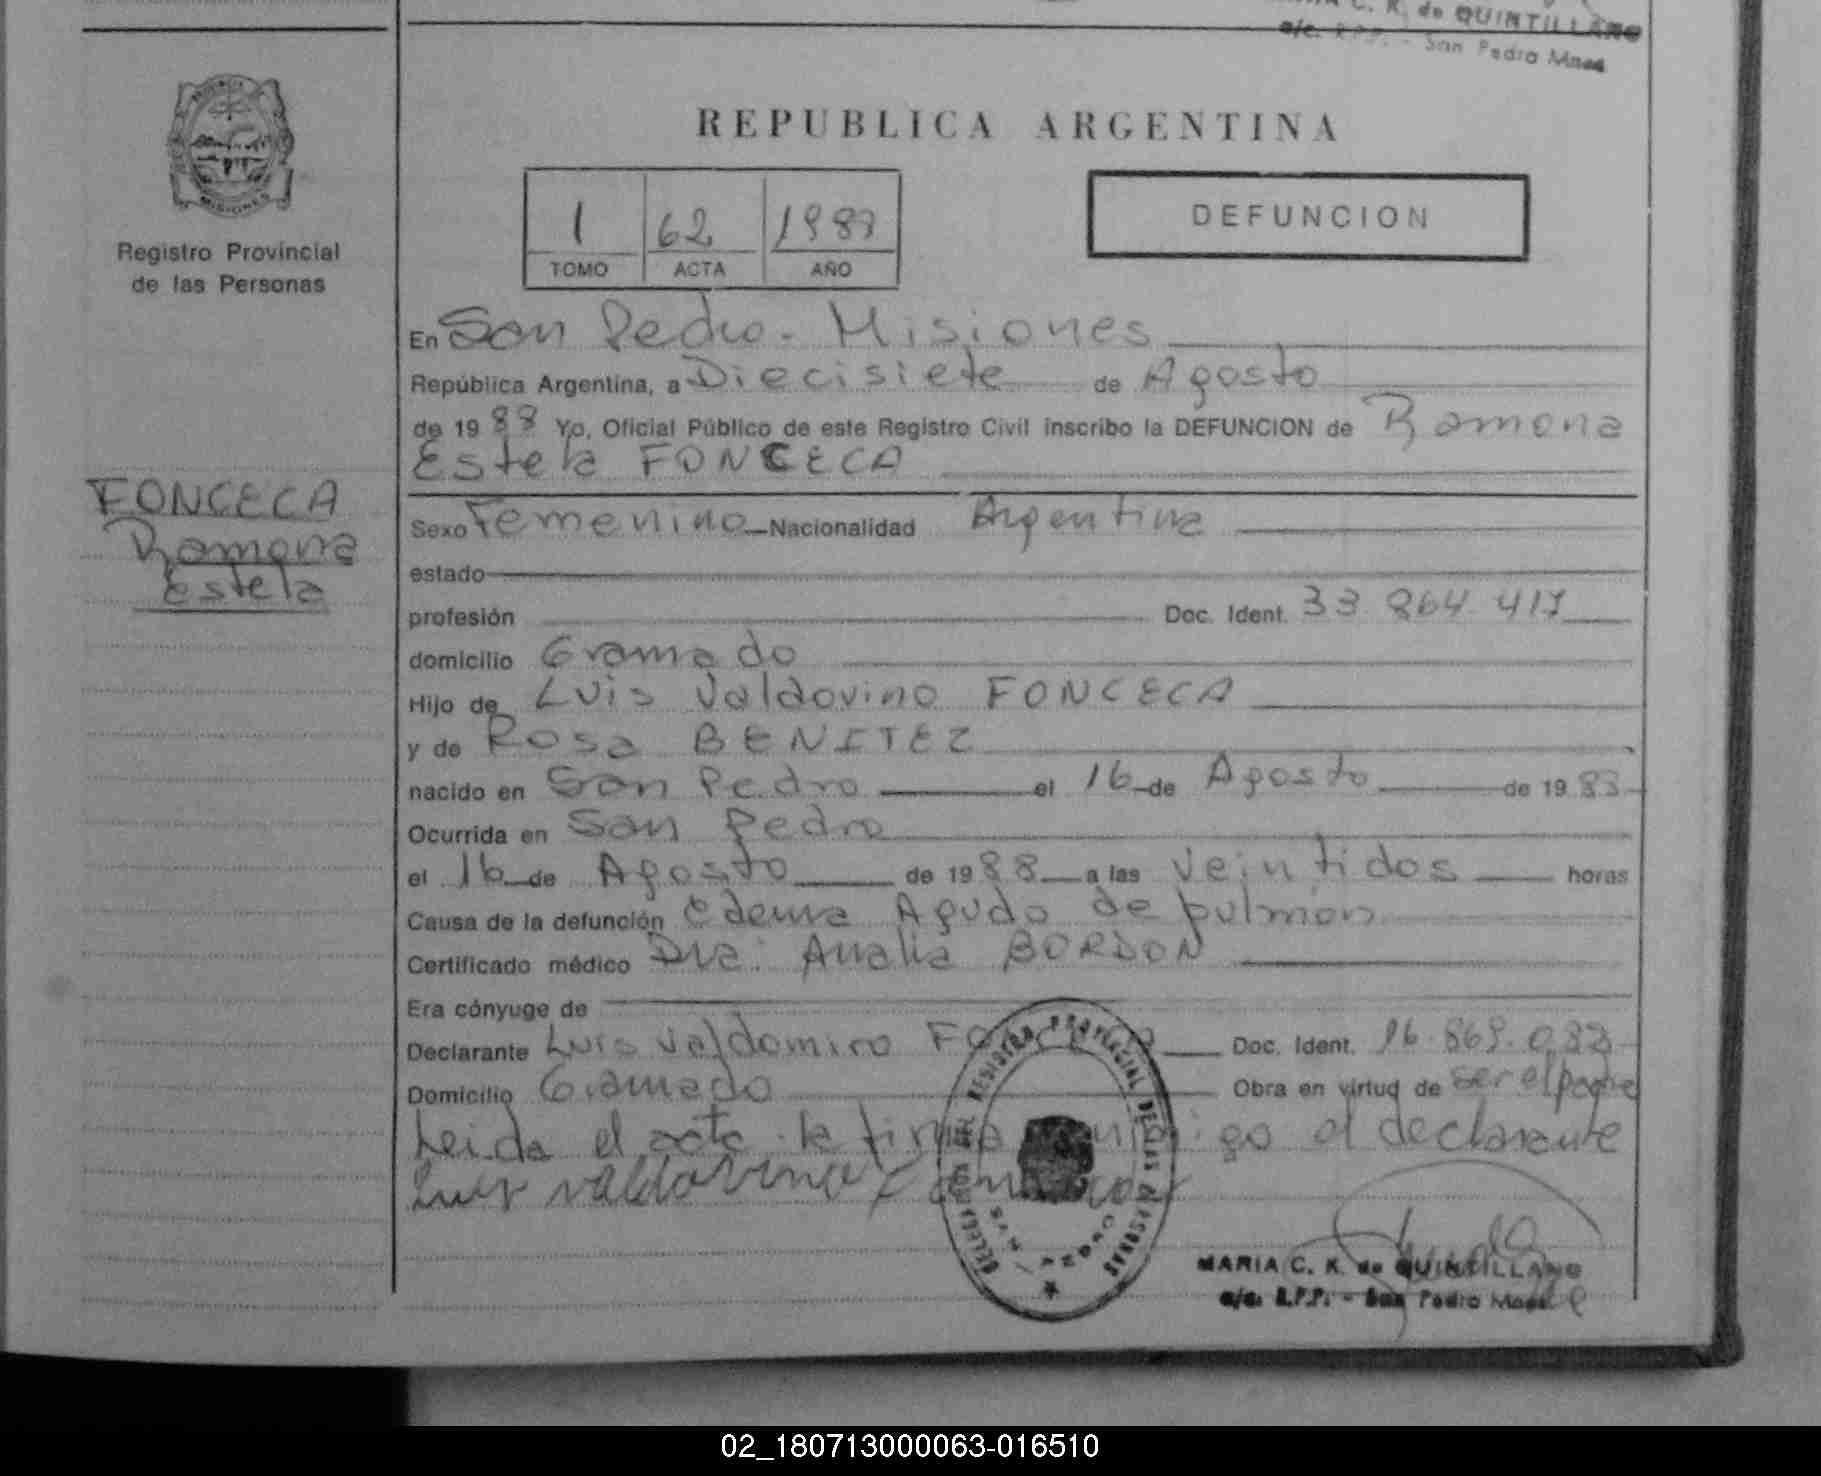 C. K. de QUINTILLANO
a/c. R.P.P. - San Pedro Mnes
PROVINCIA
MISIONES
Registro Provincial
de las Personas
FONCECA
Ramona
Estela
REPUBLICA ARGENTINA
1 62 1988
TOMO ACTA AÑO
DEFUNCION
En San Pedro - Misiones
República Argentina, a Diecisiete de Agosto
de 19 88 Yo, Oficial Público de este Registro Civil inscribo la DEFUNCION de Ramona
Estela FONCECA
Sexo Femenino Nacionalidad Argentina
estado
profesión Doc. Ident. 33 864 417
domicilio Gramado
Hijo de Luis Valdovino FONCECA
y de Rosa BENITEZ
nacido en San Pedro el 16 de Agosto de 19 83
Ocurrida en San Pedro
el 16 de Agosto de 19 88 a las veintidos horas
Causa de la defunción Edema Agudo de pulmón
Certificado médico Dra: Analia BORDON
Era cónyuge de
Declarante Luis Valdomiro Doc. Ident. 16.869.083
Domicilio Gramado Obra en virtud de ser el padre
Leida el acta la firma conmigo el declarante
Luis valdovino
REGISTRO PROVINCIAL DE LAS PERSONAS
MARIA C. K. de QUINTILLANO
a/c. R.P.P. - San Pedro Mnes
02_180713000063-016510